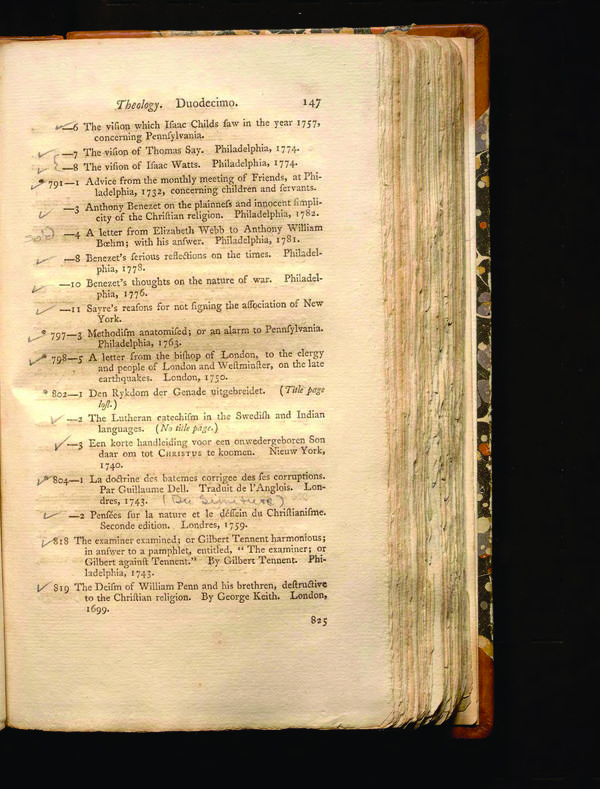 Theology. Duodecimo. 147
—6 The viſion which Iſaac Childs ſaw in the year 1757,
concerning Pennſylvania.
—7 The viſion of Thomas Say. Philadelphia, 1774.
—8 The viſion of Iſaac Watts. Philadelphia, 1774.
* 791—1 Advice from the monthly meeting of Friends, at Phi-
ladelphia, 1732, concerning children and ſervants.
—3 Anthony Benezet on the plainneſs and innocent ſimpli-
city of the Chriſtian religion. Philadelphia, 1782.
—4 A letter from Elizabeth Webb to Anthony William
Bœhm; with his anſwer. Philadelphia, 1781.
—8 Benezet's ſerious reflections on the times. Philadel-
phia, 1778.
—10 Benezet's thoughts on the nature of war. Philadel-
phia, 1776.
—11 Sayre's reaſons for not ſigning the aſſociation of New
York.
* 797—3 Methodiſm anatomiſed; or an alarm to Pennſylvania.
Philadelphia, 1763.
* 798—5 A letter from the biſhop of London, to the clergy
and people of London and Weſtminſter, on the late
earthquakes. London, 1750.
* 802—1 Den Rykdom der Genade uitgebreidet. (Title page
loſt.)
—2 The Lutheran catechiſm in the Swediſh and Indian
languages. (No title page.)
—3 Een korte handleiding voor een onwedergeboren Son
daar om tot CHRISTUS te koomen. Nieuw York,
1740.
* 804—1 La doctrine des batemes corrigee des ſes corruptions.
Par Guillaume Dell. Traduit de l'Anglois. Lon-
dres, 1743.
—2 Penſées ſur la nature et le déſſein du Chriſtianiſme.
Seconde edition. Londres, 1759.
818 The examiner examined; or Gilbert Tennent harmonious;
in anſwer to a pamphlet, entitled, " The examiner; or
Gilbert againſt Tennent." By Gilbert Tennent. Phi-
ladelphia, 1743.
819 The Deiſm of William Penn and his brethren, deſtructive
to the Chriſtian religion. By George Keith. London,
1699.
825